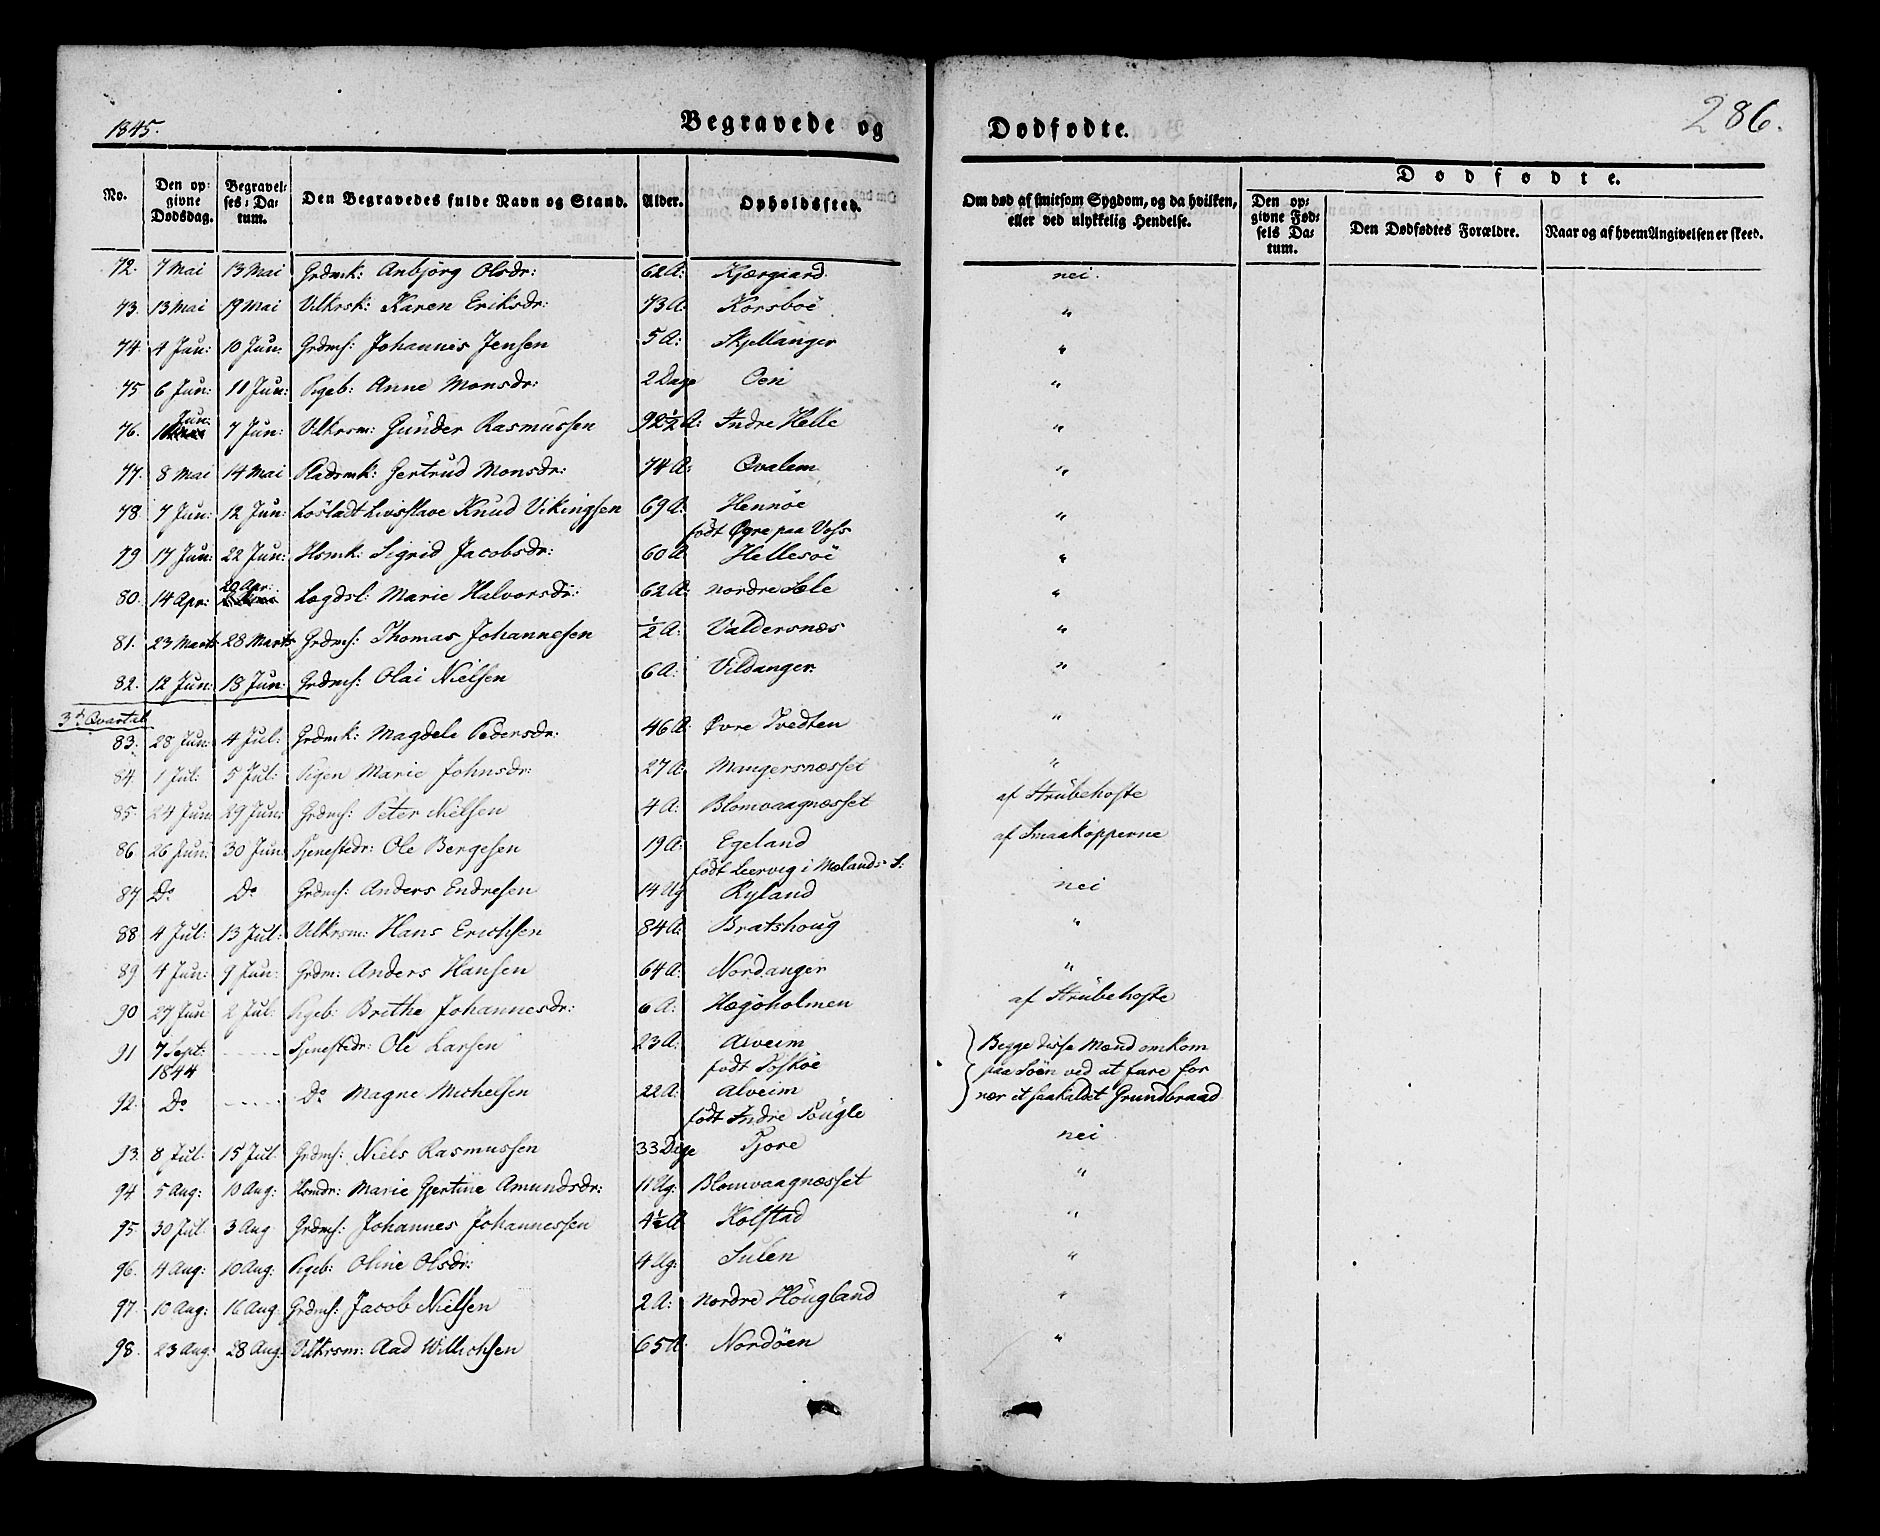 1845.
Begravede og Dødfødte.
286.
No.
Den opgivne Dødsdag.
Begravelses-Datum.
Den Begravedes fulde Navn og Stand.
Alder.
Opholdssted.
Om død af smitsom Sygdom, og da hvilken, eller ved ulykkelig Hendelse.
Dødfødte.
Den opgivne Fødsels Datum.
Den Dødfødtes Forældre.
Naar og af hvem Angivelsen er skeed.
72. 7 Mai 13 Mai Grdmk: Anbjörg Olsdr: 62 A: Kjærgaard. nei.
73. 13 Mai 19 Mai Vilkrsk: Karen Eriksdr: 73 A: Korsboe "
74. 4 Jun: 10 Jun: Grdms: Johannes Jensen 5 A: Skjellanger "
75 6 Jun: 11 Jun: Pigeb: Anne Monsdr: 2 Dage Oen "
76. 1 Jun: 7 Jun: Vilkrsm: Gunder Rasmussen 92½ A: Indre Helle "
77. 8 Mai 14 Mai Pladsmk: Gertrud Monsdr: 74 A: Qvalem "
78 7 Jun: 12 Jun: Lösladt Livsslave Knud Vikingsen 69 A: Hennöe "
födt Øyre paa Voss
79 17 Jun: 22 Jun: Hsmk: Sigrid Jacobsdr: 60 A Hellesöe "
80. 14 Apr: 20 Apr: Lægdsl: Marie Halvorsdr: 62 A: nordre Sæle "
81. 23 Marts 28 Marts Grdms: Thomas Johannesen ½ A: Valdersnæs "
82. 12 Jun: 18 Jun: Grdms: Olai Nielsen 6 A: Vildanger "
3die Qvartal
83. 28 Jun: 4 Jul: Grdmk: Magdele Pedersdr: 46 A: Øvre Tvedten "
84. 1 Jul: 5 Jul: Pigen Marie Johnsdr: 27 A: Mangersnæsset "
85. 24 Jun: 29 Jun: Grdms: Peter Nielsen 4 A: Blomvaagnæsset af Strubehoste
86 26 Jun: 30 Jun: Tjenestedr: Ole Bergesen 19 A: Egeland af Smaakopperne
födt Leervig i Mælands S:
87. Do Do Grdms: Anders Endresen 14 Ug Ryland nei
88 4 Jul: 13 Jul: Vilkrsm: Hans Erichsen 84 A: Bratshoug "
89 4 Jun: 9 Jun: Grdm: Anders Hansen 64 A: Nordanger "
90 27 Jun 2 Jul: Pigeb: Brethe Johannesdr: 6 A: Hægöholmen af Strubehoste
91 7 Sept: 1844 Tjenestedr: Ole Larsen 23 A: Alveim
födt Toskøe
92. Do Do Magne Michelsen 22 A: Alveim
födt Indre Sougle
Begge disse Mænd omkom
paa Söen ved at fare for
nær et saakaldet Grundbraad
93. 8 Jul: 15 Jul: Grdms: Niels Rasmussen 33 Dage Tjore nei
94 5 Aug: 10 Aug: Hsmdr: Marie Gjertine Amundsdr: 11 Ug: Blomvaagnæsset "
95. 30 Jul 3 Aug Grdms: Johannes Johannessen 4½ A Kolstad "
96. 4 Aug: 10 Aug: Pigeb: Oline Olsdr: 4 Ug: Sulen "
97. 10 Aug: 16 Aug Grdms: Jacob Nielsen 2 A: nordre Hougland "
98. 23 Aug: 28 Aug: Vilkrsm: Aad Willichsen 65 A: Nordöen "